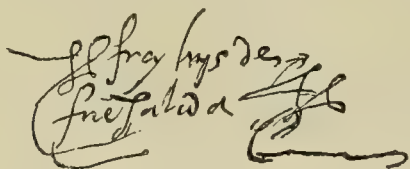 fray luys de
fuēsalida